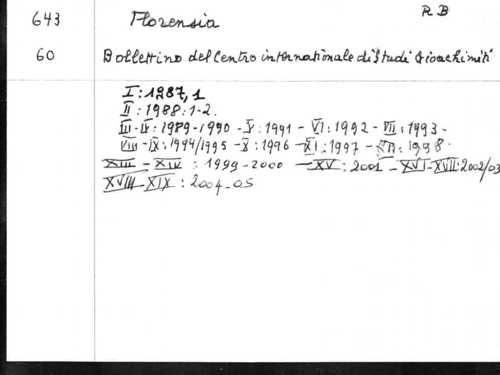 643 Florensia R B
60 Bollettino del Centro internationale di Studi Gioachimiti
I : 1987, 1
II : 1988 : 1-2.
III-IV : 1989-1990 - V : 1991 - VI : 1992 - VII : 1993 -
VIII-IX : 1994/1995 - X : 1996 - XI : 1997 - XII : 1998.
XIII - XIV : 1999-2000 - XV : 2001 - XVI-XVII : 2002/03
XVIII-XIX : 2004-05